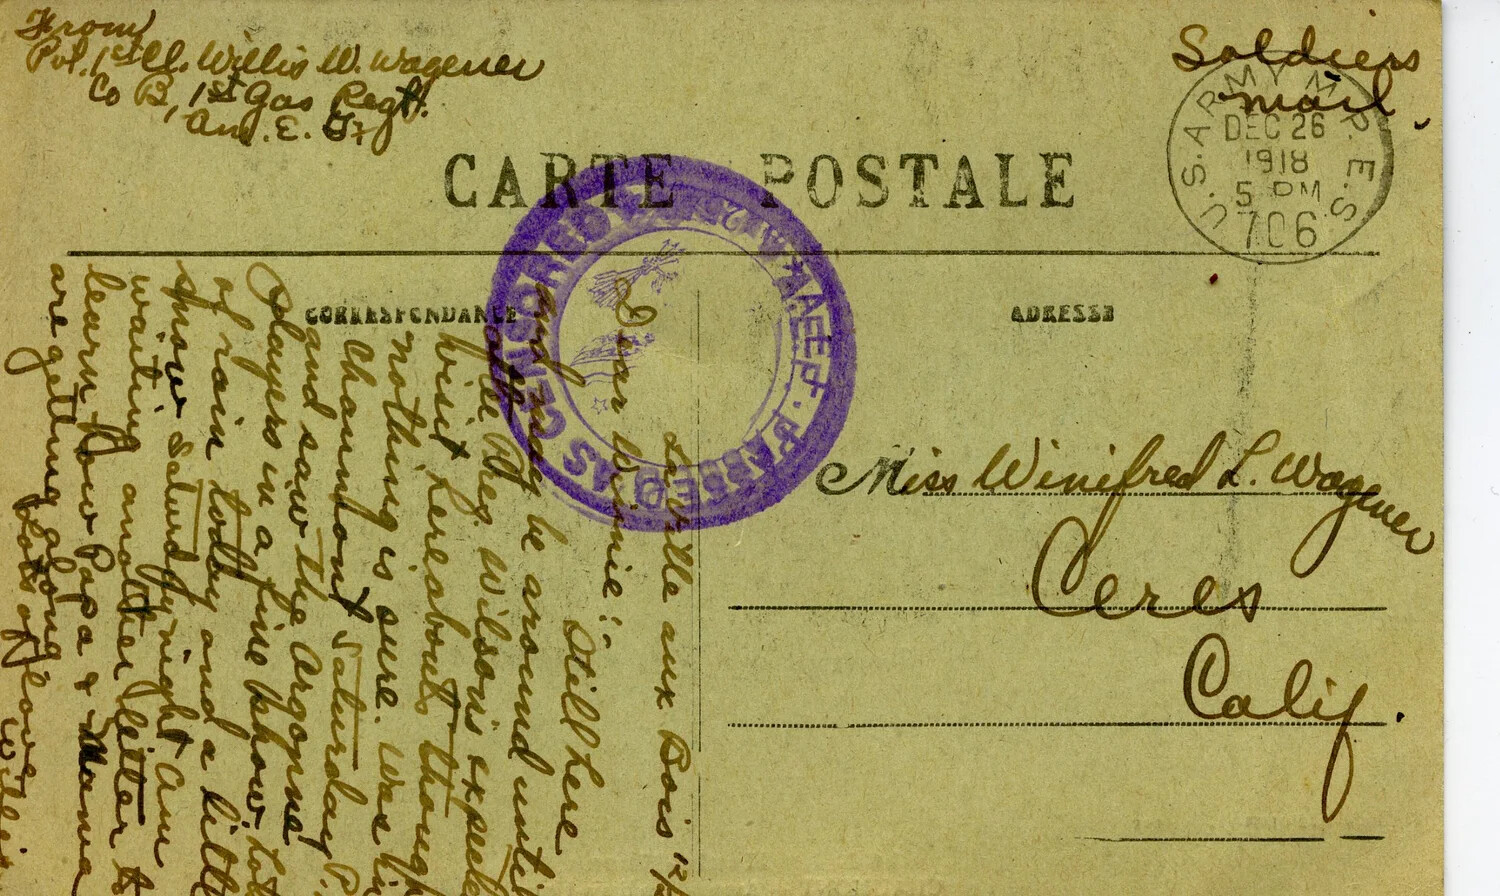 From
Pvt. 1st Cl. Willis W. Wagener
Co B, 1st Gas Regt.
Am. E. F.
Soldiers
mail.
U.S. ARMY M.P.E.S.
DEC 26
1918
5 PM
706
CARTE POSTALE
CORRESPONDANCE
ADRESSE
PASSED AS CENSORED
Miss Winifred L. Wagener
Ceres
Calif.
La ville aux Bois 12/
Dear Winnie:
Still here
and may be around until
Pres. Wilson is expected
visit hereabouts though
nothing is sure. Was in
Chaumont Saturday P.
and saw the Argonne
Players in a fine show. Lots
of rain today and a little
snow Saturday night. Am
waiting another letter to
learn how Papa & Mama
are getting along
Lots of love
Willis